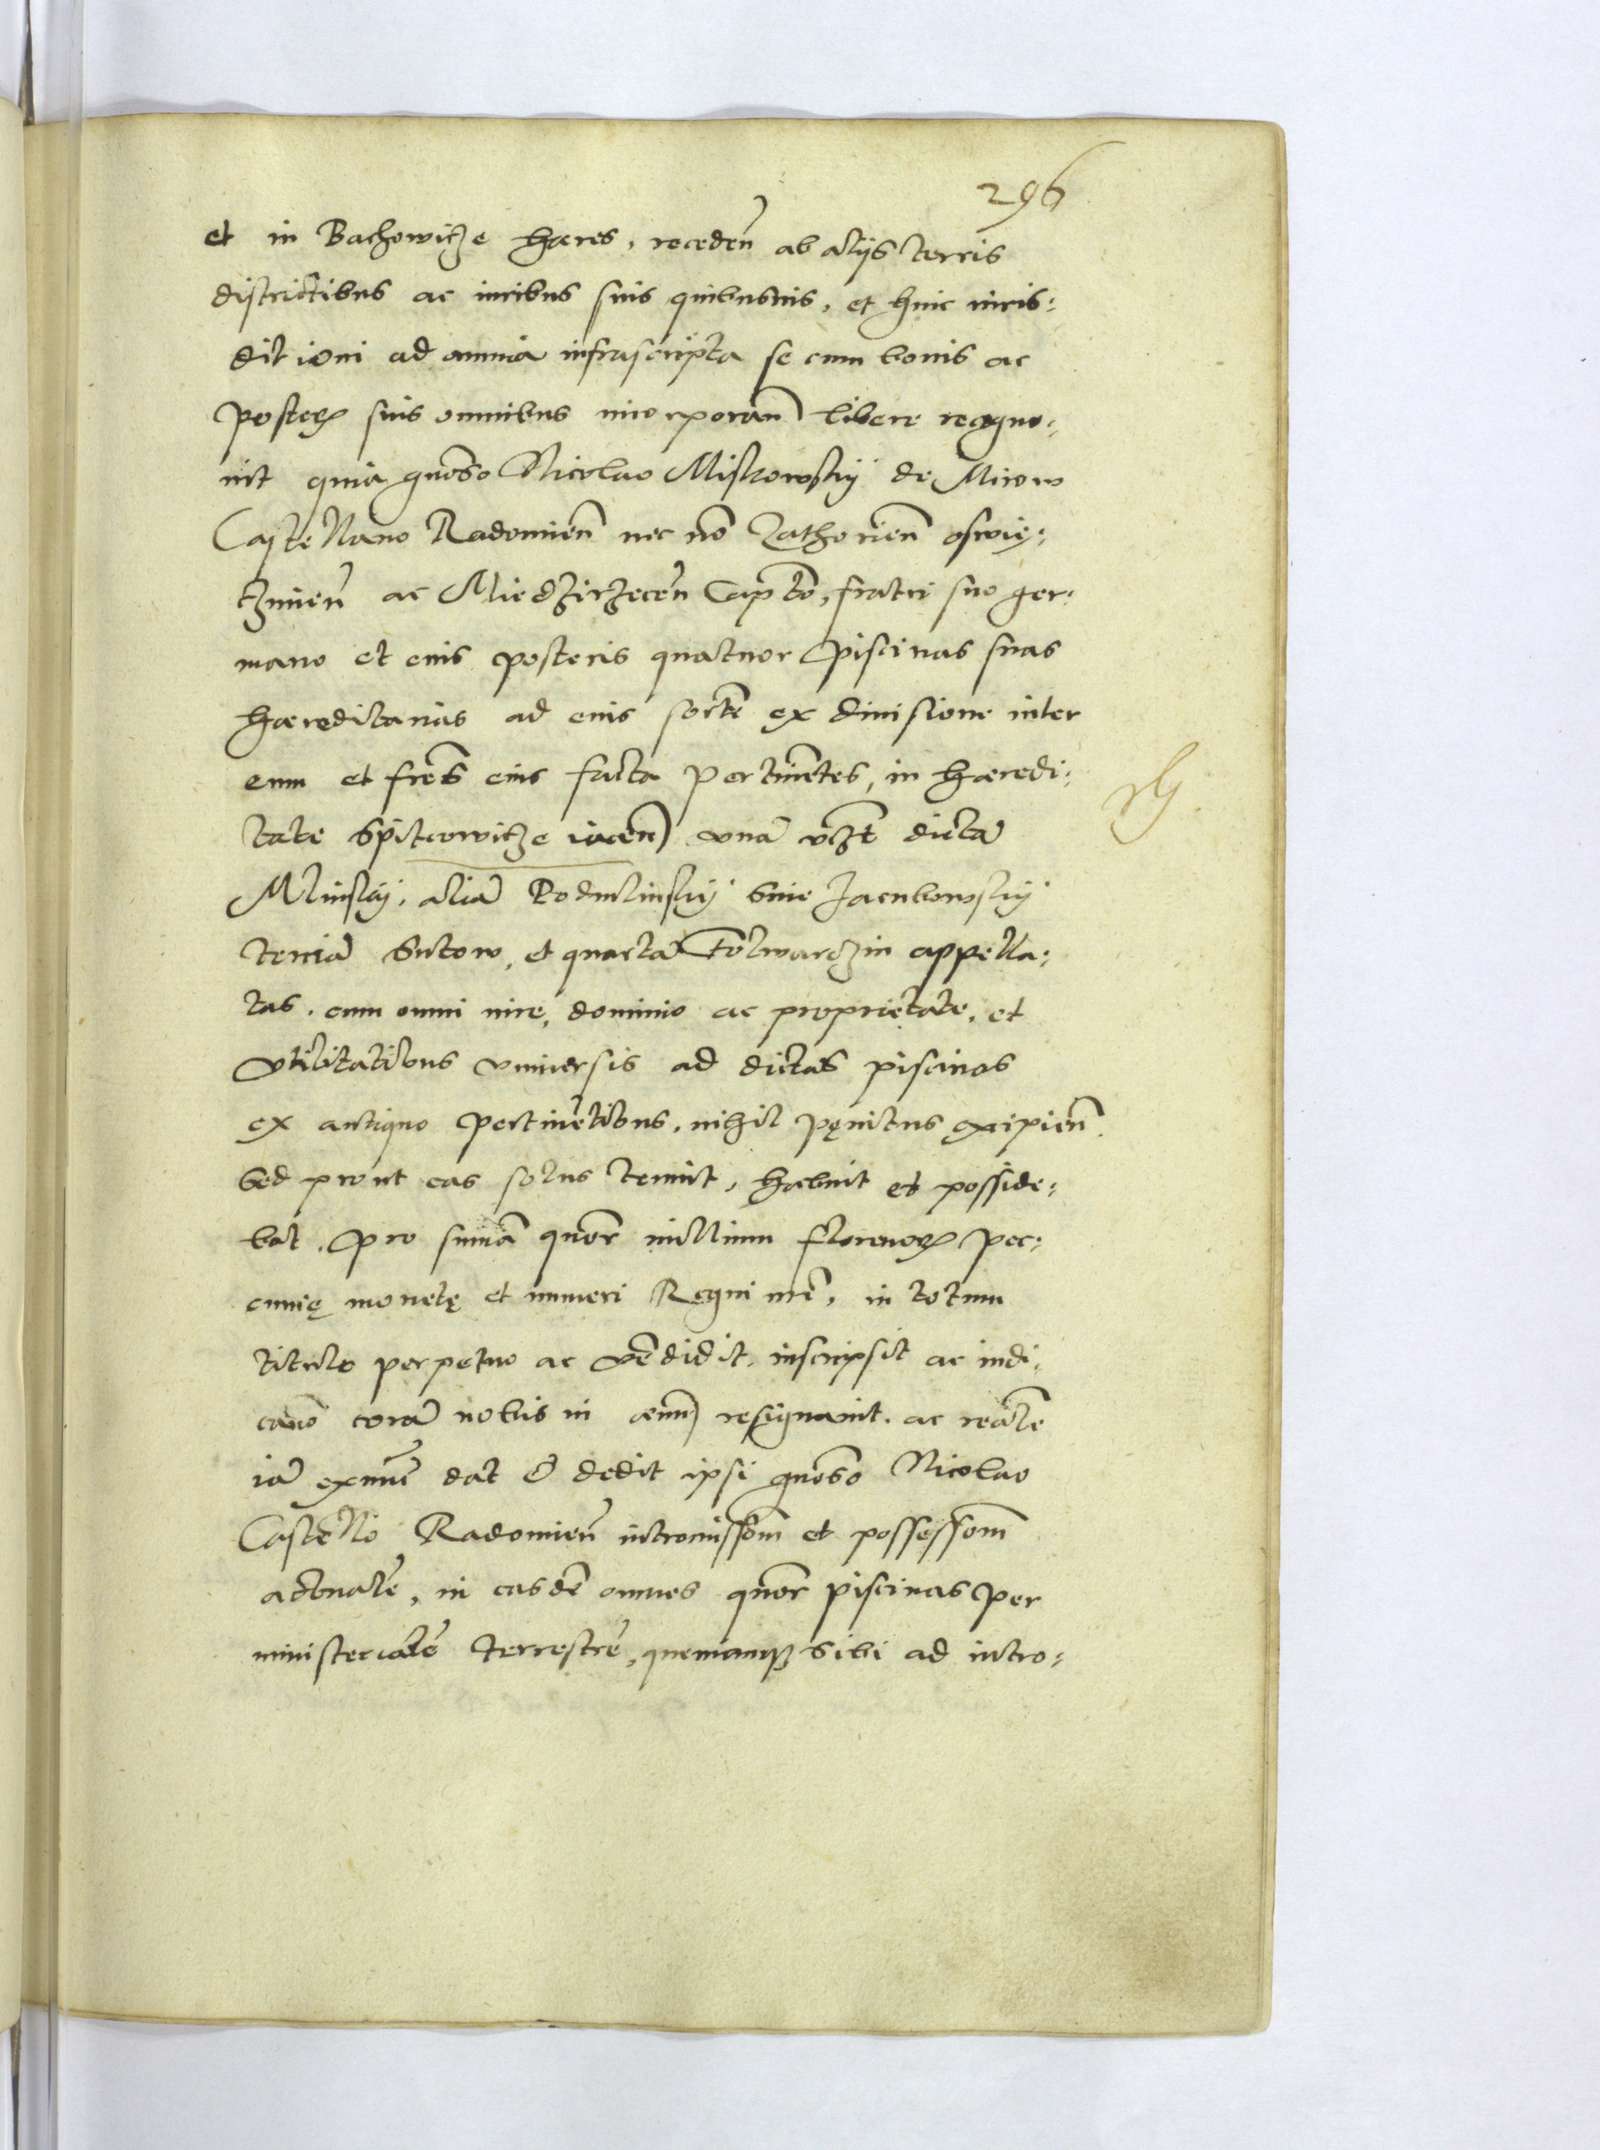 296
et in Bachowicze hæres, receden̄ ab aliis terris
districtibus ac iuribus suis quibusuis, et huic iuris:
ditioni ad omnia infrascripta se cum bonis ac
posterꝝ suis omnibus incorporan̄ libere recogno:
uit quia gnōso Nicolao Miskowskÿ de Mirow
Castellano Radomien̄ nec nō Zathorien̄ oswie:
czimen̄ ac Miedzirzecen̄ Captō, fratri suo ger:
mano et eius posteris quatuor piscinas suas
hæreditarias ad eius sortē ex diuisione inter
eum et frēs eius facta pertinētes, in hæredi:
tate Spitcowicze iacen̄ vnā vczt dictā
Mlinskÿ, aliā Podmlinskÿ siue Jacubowskÿ
terciā Sutow, et quartā Folwarczin appella:
tas, cum omni iure, dominio ac proprietate, et
vtilitatibus vniuersis ad dictas piscinas
ex antiquo pertinētibus, nihil pęnitus excipien̄.
sed prout eas solus tenuit, habuit et posside:
bat, pro summā quōr millium florenorꝝ pec:
cunię monetę et numeri Regni nrī, in totum
titulo perpetuo ac vēdidit, inscripsit ac indi:
canō corā nobis in æuū resignauit. ac reālē
iā exnunc dat & dedit ipsi gnōso Nicolao
Castello Radomien̄ intromissiōm et possessiōm
actualē, in easdē omnes quōr piscinas per
ministerialē terrestrē, quemcunqꝫ sibi ad intro: